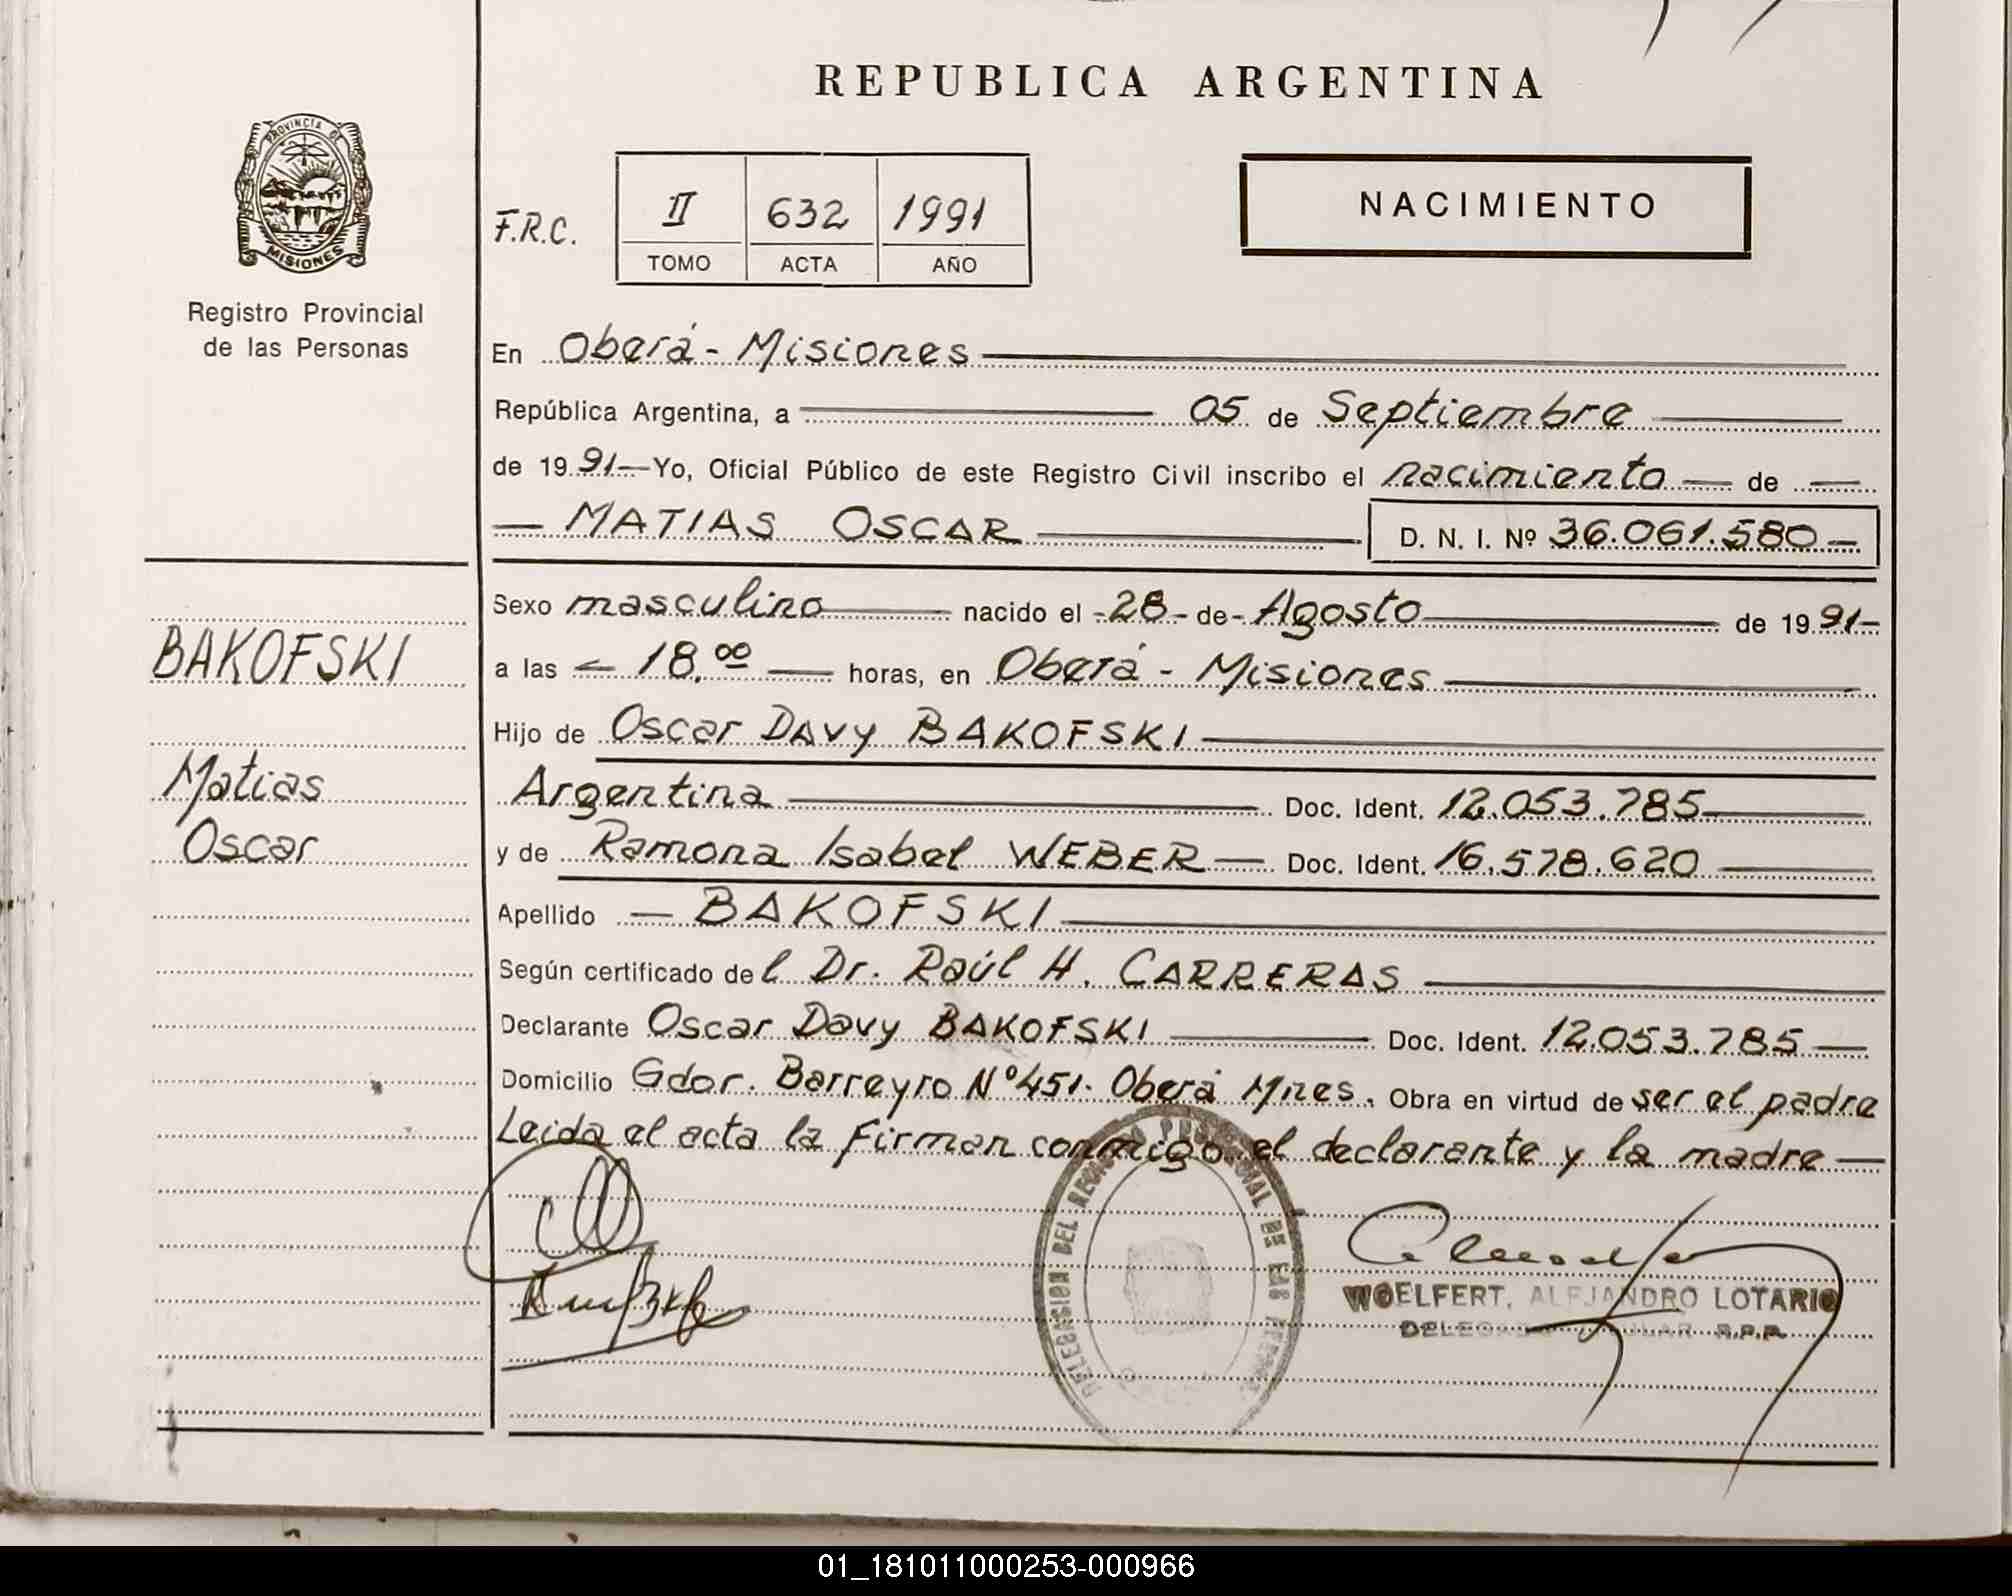 REPUBLICA ARGENTINA
PROVINCIA DE
MISIONES
Registro Provincial
de las Personas
F.R.C.
II 632 1991
TOMO ACTA AÑO
NACIMIENTO
En Oberá - Misiones
República Argentina, a 05 de Septiembre
de 1991 Yo, Oficial Público de este Registro Civil inscribo el nacimiento de
MATIAS OSCAR D. N. I. Nº 36.061.580
Sexo masculino nacido el 28 de Agosto de 1991
a las 18.00 horas, en Oberá - Misiones
Hijo de Oscar Davy BAKOFSKI
Argentina Doc. Ident. 12.053.785
y de Ramona Isabel WEBER Doc. Ident. 16.578.620
Apellido BAKOFSKI
Según certificado del Dr. Raúl H. CARRERAS
Declarante Oscar Davy BAKOFSKI Doc. Ident. 12.053.785
Domicilio Gdor. Barreyro Nº 451. Oberá Mnes. Obra en virtud de ser el padre
Leida el acta la Firman conmigo el declarante y la madre
BAKOFSKI
Matias
Oscar
DELEGACION DEL REGISTRO PROVINCIAL DE LAS
WOELFERT, ALEJANDRO LOTARIO
DELEGADO TITULAR R.P.P.
01_181011000253-000966